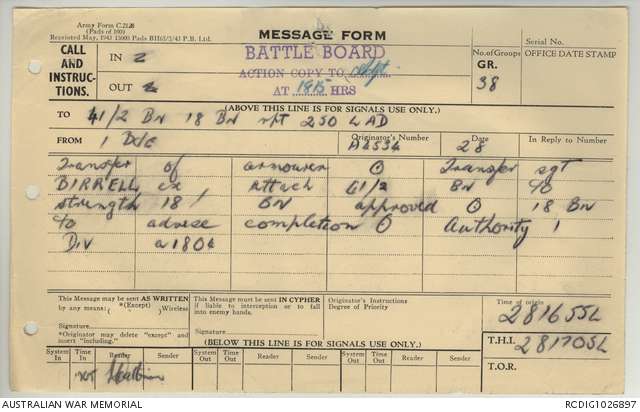 Army Form C.2128
(Pads of 100)
Reprinted May, 1943 15000 Pads BH63/3/43 P.B. Ltd.
MESSAGE FORM
Serial No.
CALL
AND
INSTRUC-
TIONS.
IN 2
OUT 2
BATTLE BOARD
ACTION COPY TO
AT 1815 HRS
No. of Groups
GR.
38
OFFICE DATE STAMP
(ABOVE THIS LINE IS FOR SIGNALS USE ONLY.)
TO 41/2 BN 18 BN rpt 230 LAD
FROM
Originator's Number
A4534
Date
28
In Reply to Number
Transfer of armourer O Transfer sgt
BIRRELL ex attach 41/2 BN to
strength 18 BN approved O 18 BN
to advise completion O Authority 1
DIV
This Message may be sent AS WRITTEN
by any means. (*(Except) ) Wireless
Signature
*Originator may delete "except" and
insert "including."
This Message must be sent IN CYPHER
if liable to interception or to fall
into enemy hands.
Signature
Originator's Instructions
Degree of Priority
Time of origin
281655L
T.H.I. 281705L
T.O.R.
(BELOW THIS LINE IS FOR SIGNALS USE ONLY.)
System In
Time In
Reader
Sender
System Out
Time Out
Reader
Sender
System Out
Time Out
Reader
Sender
AUSTRALIAN WAR MEMORIAL
RCDIG1026897